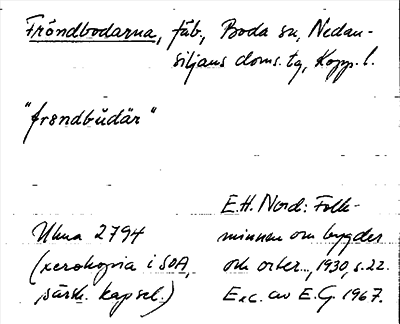 Fröndbodarna, fäb., Boda sn, Nedan-
siljans doms. tg, Kopp. l.
"frøndbu̇där"
Uma 2794
(xerokopia i SOA,
särsk. kapsel.)
E.H. Nord: Folk-
minnen om bygder
och orter..., 1930, s. 22.
Exc. av E.G. 1967.